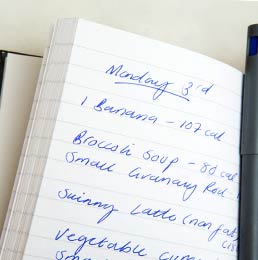 Monday 3rd
1 Banana - 107 cal
Broccoli Soup - 80 cal
Small Granary Rod
Skinny Latte (non fat
Vegetable
Small